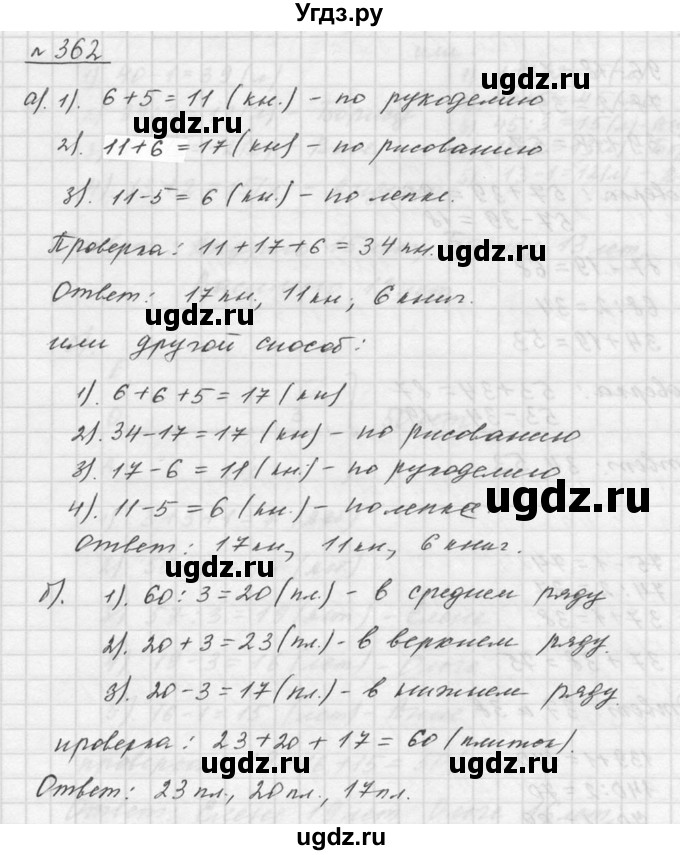 Угдз.ру
№ 362
а). 1). 6+5=11 (кн.) - по рукоделию
ugdz.ru
2). 11+6=17(кн) - по рисованию
3). 11-5=6(кн.) - по лепке.
Проверка: 11+17+6=34 кн.
ugdz.ru
Ответ: 17кн, 11кн, 6 книг.
ugdz.ru
или другой способ:
1). 6+6+5=17(кн)
2). 34-17=17(кн) - по рисованию
3). 17-6=11(кн.) - по рукоделию
4). 11-5=6(кн.) - по лепке
ugdz.ru
Ответ: 17кн, 11кн, 6 книг.
ugdz.ru
б). 1). 60:3=20(пл.) - в среднем ряду
2). 20+3=23(пл.) - в верхнем ряду.
ugdz.ru
3). 20-3=17(пл.) - в нижнем ряду.
проверка: 23+20+17=60(плиток).
ugdz.ru ugdz.ru
Ответ: 23пл., 20пл., 17пл.
ugdz.ru